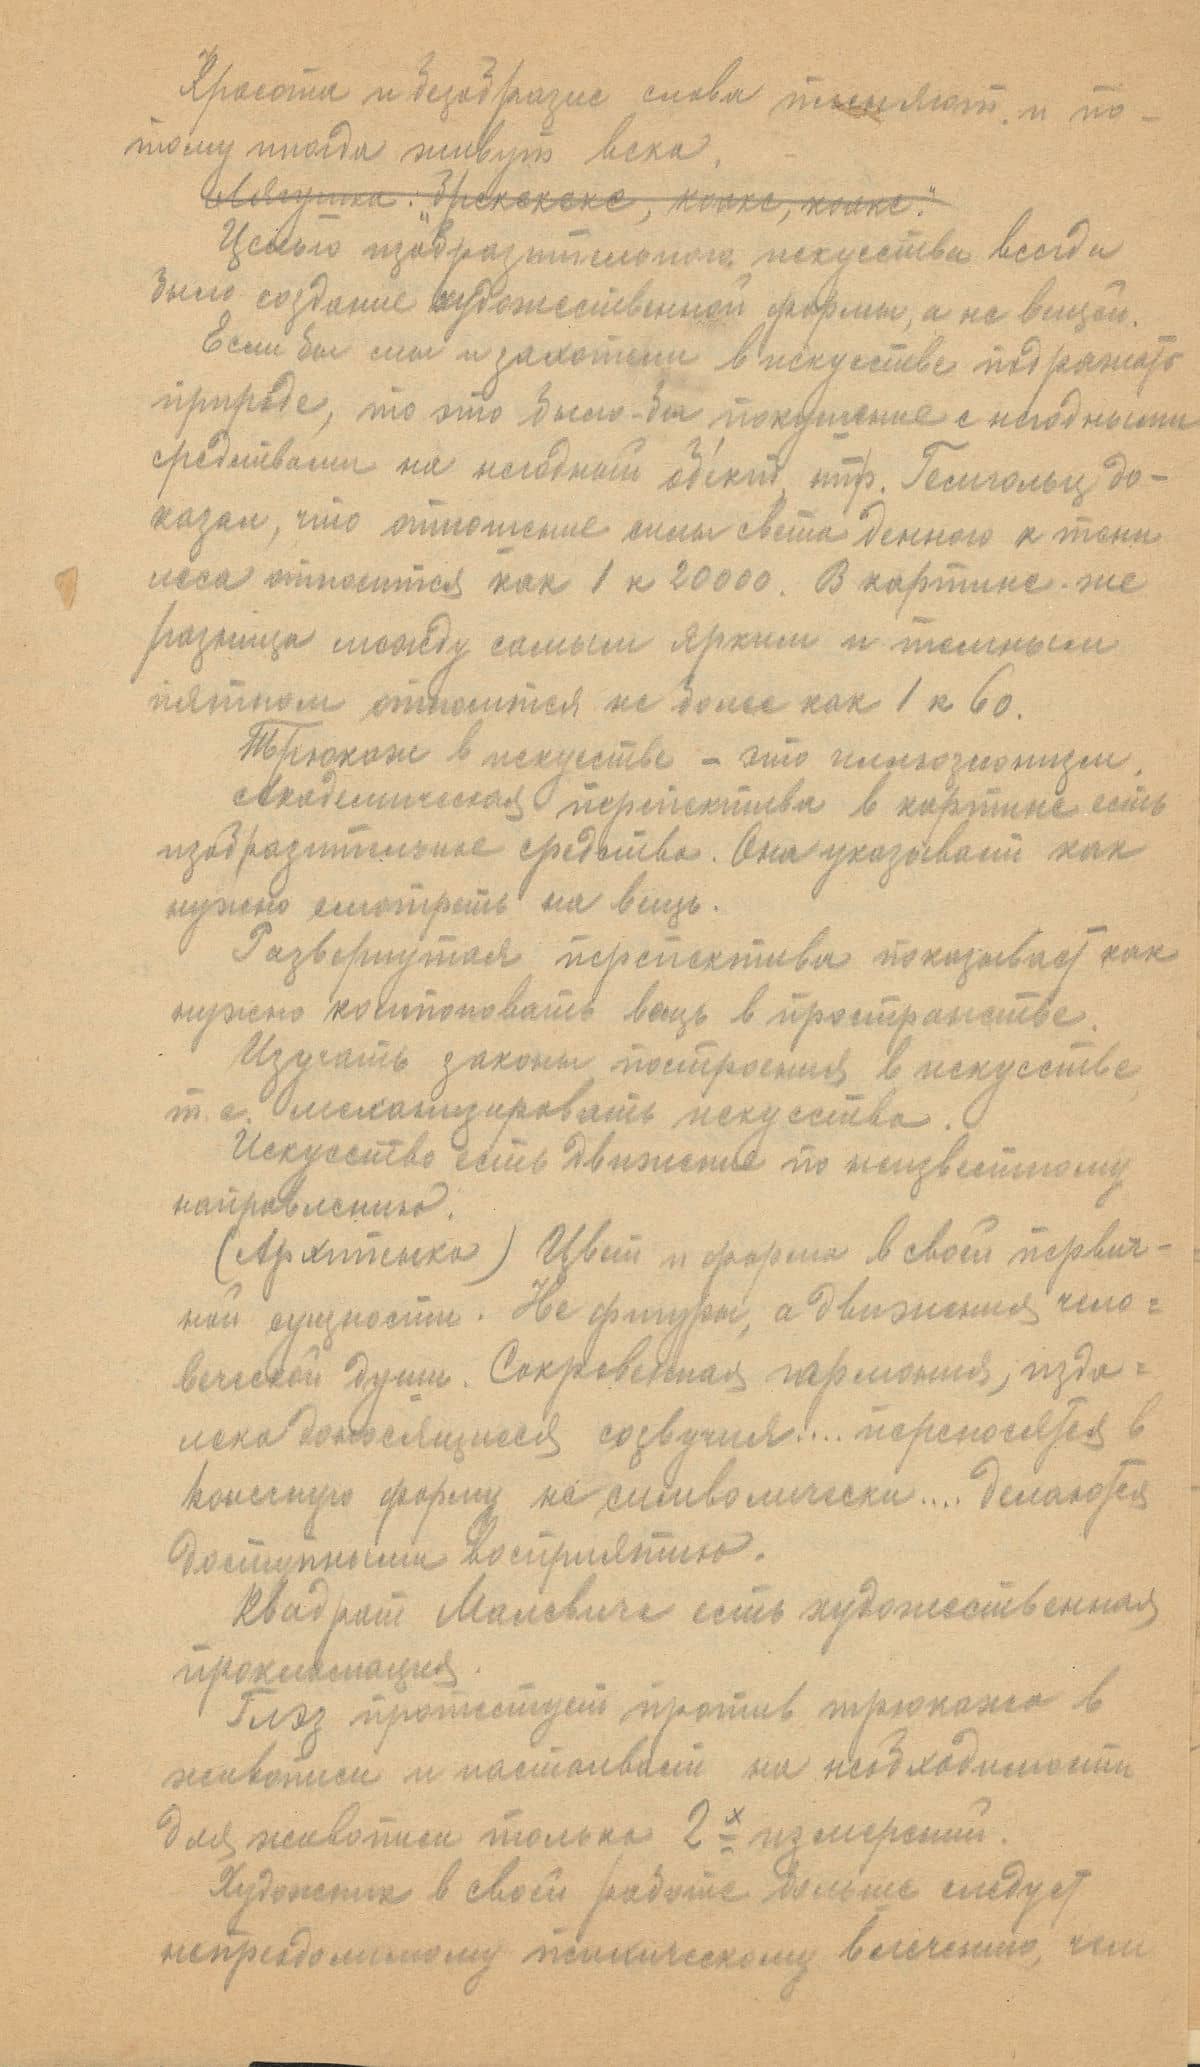 Красота и безобразие слова пленяют, и по-
тому иногда живут века.
Лягушка: "Брекекекс, коакс, коакс."
Целью изобразительного искусства всегда
было создание художественной формы, а не вещей.
Если бы мы и захотели в искусстве подражать
природе, то это было-бы покушение с негодными
средствами на негодный объект, нпр. Гельмгольц до-
казал, что отношение силы света денного к тени
леса относится как 1 к 20000. В картине-же
разница между самым ярким и темным
пятном относится не более как 1 к 60.
Трюкаж в искусстве – это иллюзионизм.
Академическая перспектива в картине есть
изобразительное средство. Она указывает как
нужно смотреть на вещь.
Развернутая перспектива показывает как
нужно компоновать вещь в пространстве.
Изучать законы построения в искусстве,
т.е. механизировать искусство.
Искусство есть движение по неизвестному
направлению.
(Архипенко) Цвет и форма в своей первич-
ной сущности. Не фигуры, а движения чело=
веческой души. Сокровенная гармония, изда=
лека доносящиеся созвучия.... переносятся в
конечную форму не символически.... делаются
доступными восприятию.
Квадрат Малевича есть художественная
прокламация.
Глэз протестует против трюкажа в
живописи и настаивает на необходимости
для живописи только 2х измерений.
Художник в своей работе больше следует
непреодолимому психическому влечению, чем